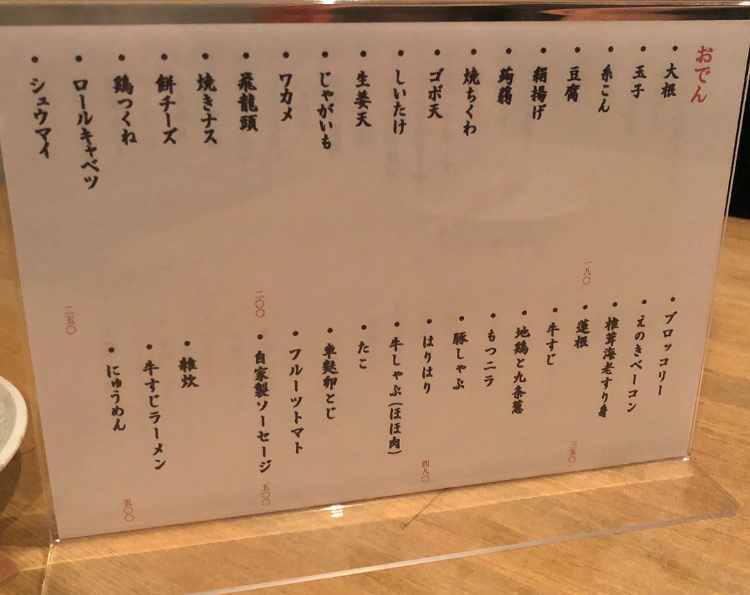 おでん
・大根
・玉子
・糸こん
・豆腐
一八〇
・絹揚げ
・蒟蒻
・焼ちくわ
・ゴボ天
・しいたけ
・生姜天
・じゃがいも
・ワカメ
二〇〇
・飛龍頭
・焼きナス
・餅チーズ
・鶏つくね
・ロールキャベツ
二五〇
・シュウマイ
・ブロッコリー
・えのきベーコン
・椎茸海老すり身
・蓮根
三五〇
・牛すじ
・地鶏と九条葱
・もつニラ
・豚しゃぶ
・はりはり
四八〇
・牛しゃぶ(ほほ肉)
・たこ
・車麩卵とじ
・フルーツトマト
・自家製ソーセージ
五〇〇
・雑炊
・牛すじラーメン
・にゅうめん
五〇〇